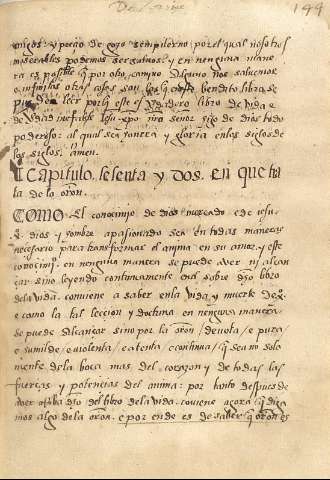 144
migos: y precio de gozo sempiterno: por el qual nosotros
miserables podemos ser saluos: y en ninguna mane
ra es posible q̃ por otro camino alguno nos saluemos
e infinitas otras cosas son las q̃ este bendito libro se
pueden leer porq̃ este es verdadero libro de vida e
de verdad inefable jesu xpo nr̃o señor hijo de dios todo
poderoso: al qual sea honrra y gloria en los siglos de
los siglos. amen.
Capitulo. sesenta y dos. en que tra
ta de la orõn.
COMO. el conocimjo de dios increado e de jesu
x̃. dios y hombre apasionado sea en todas maneras
necesario para transformar el anima en su amor. y este
conocimjº. en ninguna manera se puede aver nj alcan
çar sino leyendo continuamente enel sobre dh̃o libro
dela vida. conviene a saber enla vida y muerte de x̃.
e como la tal lection y doctrina en ninguna manera
se puede alcançar sino por la orõn / devota / e pura
e humilde / e violenta / e atenta e continua / q̃ sea no sola
mente dela boca mas del coraçon y de todas las
fuerças y potencias del anima: por tanto despues de
aver dh̃o del libro dela vida. conviene agora q̃ diga
mos algo dela orõn. e por ende es de saber q̃ orõn es